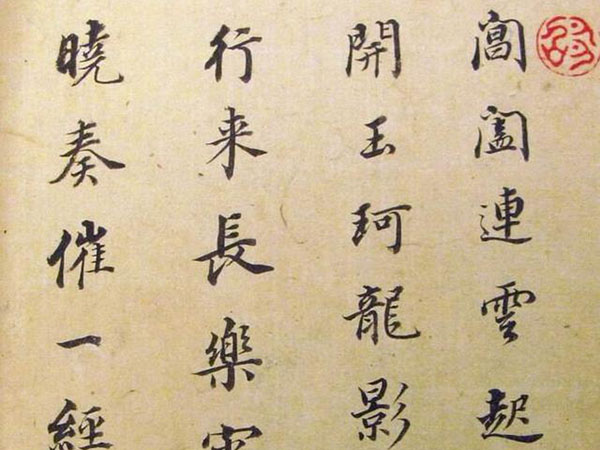 閶闔連雲起
開玉珂龍影
行来長樂宵
曉奏催一經